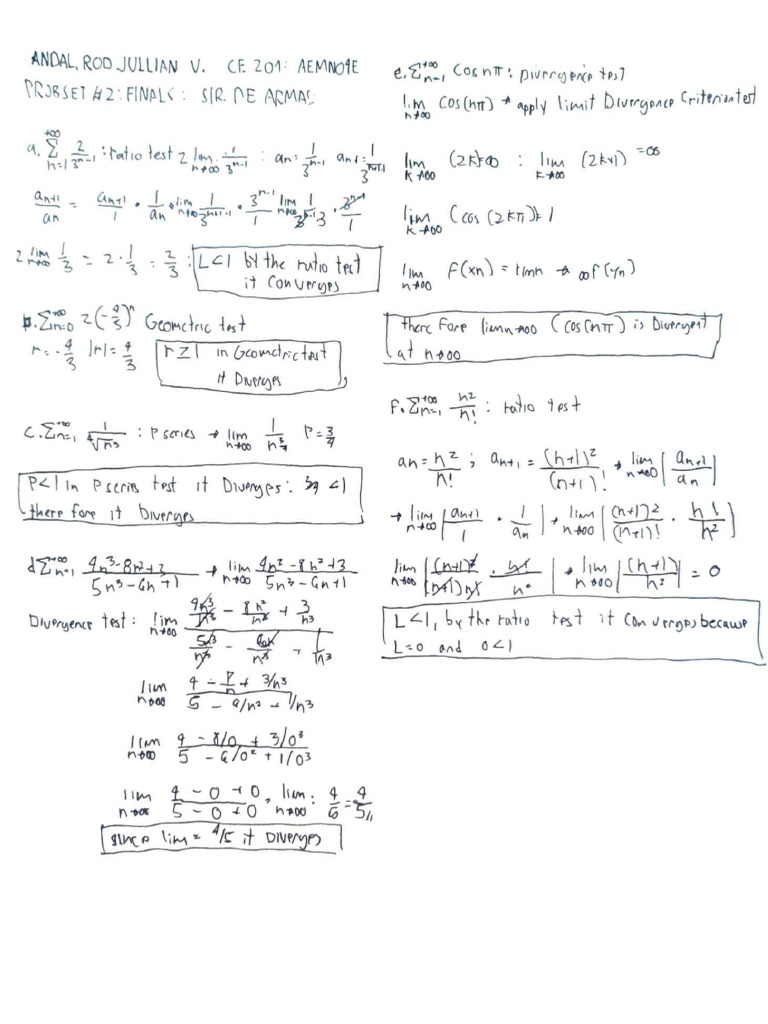 ANDAL, ROD JULLIAN V. CE 201: AEMNO1E
PROBSET #2: FINALS: SIR. DE ARMAS
a. Σ_{n=1}^{+∞} 2/3^{n-1} : ratio test 2 lim_{n→∞} 1/3^{n-1} : an = 1/3^{n-1} an+1 = 1/3^{n+1-1}
an+1/an = an+1/1 · 1/an · lim_{n→∞} 1/3^{n+1-1} · 3^{n-1}/1 lim_{n→∞} 1/3^{n-1}·3 · 3^{n-1}/1
2 lim_{n→∞} 1/3 = 2 · 1/3 = 2/3 : L<1 by the ratio test
it converges
b. Σ_{n=0}^{+∞} 2(-4/3)^n Geometric test
r = -4/3 |r| = 4/3 r ≥ 1 in Geometric test
it Diverges
c. Σ_{n=1}^{+∞} 1/∜n³ : P series → lim_{n→∞} 1/n^{3/4} P = 3/4
P<1 in P series test it Diverges: 3/4 <1
there fore it Diverges
d Σ_{n=1}^{+∞} 4n³-8n²+3/5n³-6n+1 → lim_{n→∞} 4n²-8n²+3/5n³-6n+1
Divergence test: lim_{n→∞} 4n³/n³ - 8n²/n³ + 3/n³ / 5n³/n³ - 6n/n³ + 1/n³
lim_{n→∞} 4 - 8/n + 3/n³ / 5 - 6/n² + 1/n³
lim_{n→∞} 4 - 8/0 + 3/0³ / 5 - 6/0² + 1/0³
lim_{n→∞} 4 - 0 + 0 / 5 - 0 + 0, lim_{n→∞} : 4/5 = 4/5 //
since lim = 4/5 it Diverges
e. Σ_{n=1}^{+∞} Cos nπ : Divergence test
lim_{n→∞} Cos(nπ) → apply limit Divergence Criterion test
lim_{k→∞} (2k) = ∞ : lim_{k→∞} (2k+1) = ∞
lim_{k→∞} (cos(2kπ)) = 1
lim_{n→∞} F(xn) = lim n → ∞ f(yn)
there fore lim n→∞ (cos(nπ)) is Divergent
at n→∞
F. Σ_{n=1}^{+∞} n²/n! : ratio test
an = n²/n! ; an+1 = (n+1)²/(n+1)! → lim_{n→∞} |an+1/an|
→ lim_{n→∞} |an+1/1 · 1/an| → lim_{n→∞} |(n+1)²/(n+1)! · n!/n²|
lim_{n→∞} |(n+1)²/(n+1)n! · n!/n²| → lim_{n→∞} |(n+1)/n²| = 0
L<1, by the ratio test it converges because
L=0 and 0<1